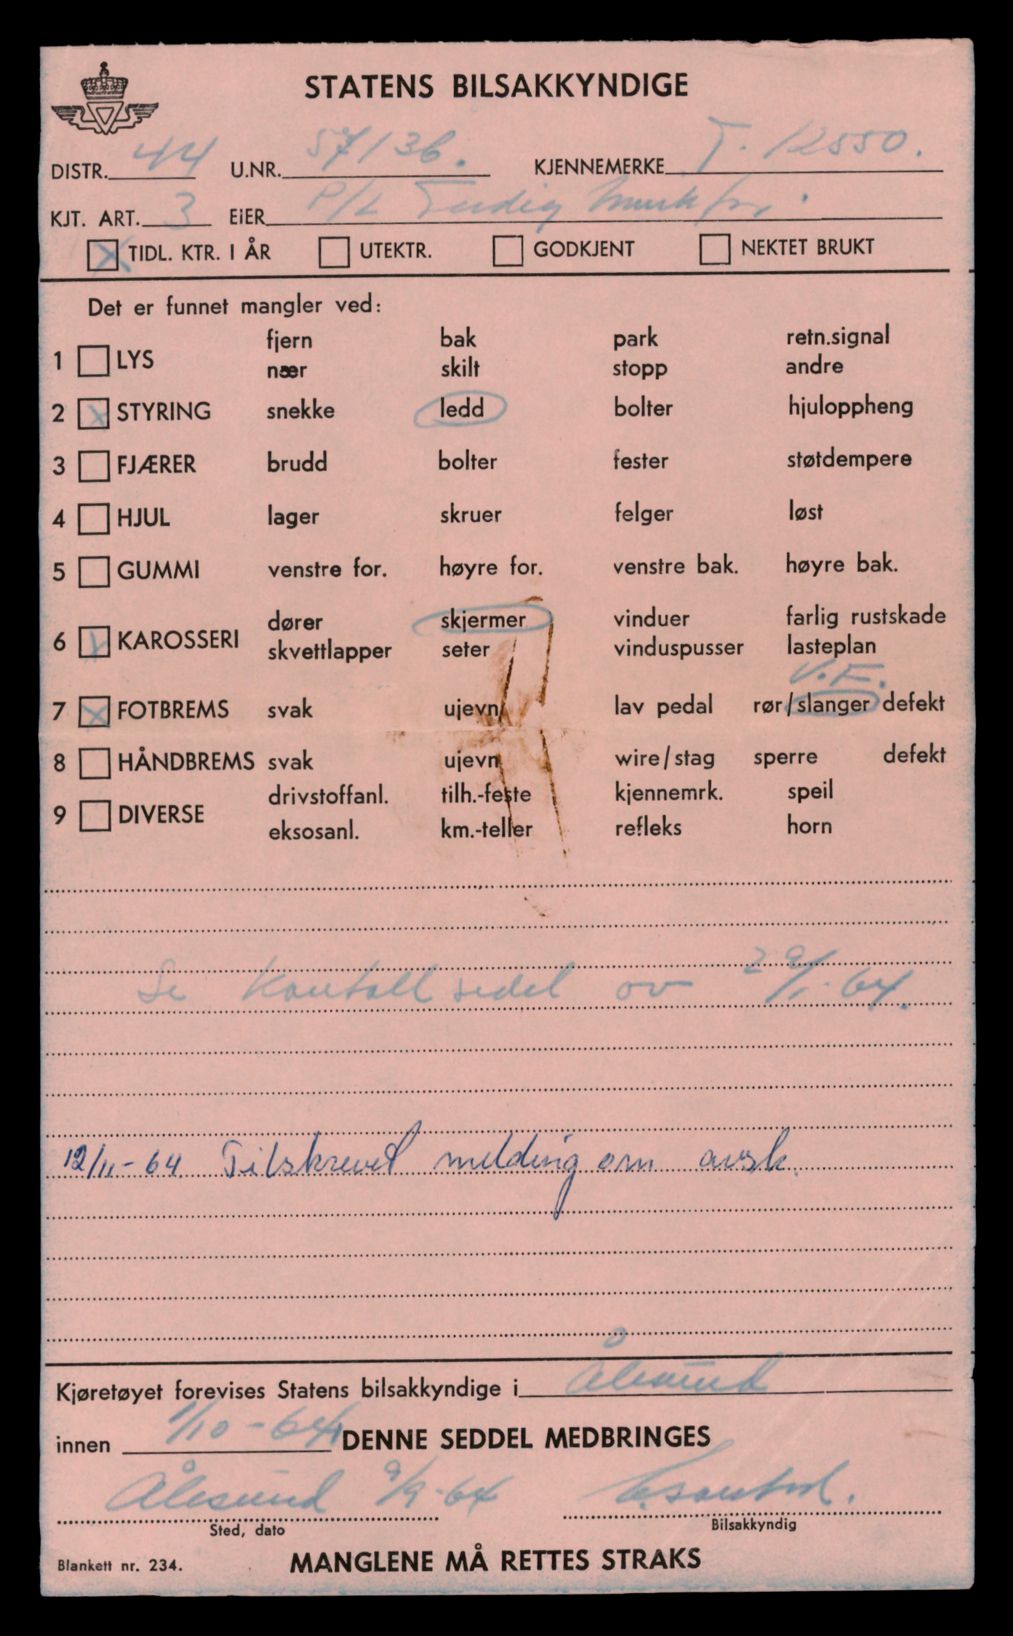 STATENS BILSAKKYNDIGE
DISTR. 44 U.NR. 57136. KJENNEMERKE T. 12550.
KJT. ART. 3 EiER P/L
X TIDL. KTR. I ÅR UTEKTR. GODKJENT NEKTET BRUKT
Det er funnet mangler ved:
fjern bak park retn.signal
1 LYS
nær skilt stopp andre
2 X STYRING snekke ledd bolter hjuloppheng
3 FJÆRER brudd bolter fester støtdempere
4 HJUL lager skruer felger løst
5 GUMMI venstre for. høyre for. venstre bak. høyre bak.
dører skjermer vinduer farlig rustskade
6 X KAROSSERI
skvettlapper seter vinduspusser lasteplan
V.F.
7 X FOTBREMS svak ujevn lav pedal rør/slanger defekt
8 HÅNDBREMS svak ujevn wire/stag sperre defekt
drivstoffanl. tilh.-feste kjennemrk. speil
9 DIVERSE
eksosanl. km.-teller refleks horn
Se Kontoll sedel av 29/1-64.
12/11-64 Tilskrevet melding om avsk.
Kjøretøyet forevises Statens bilsakkyndige i Ålesund
innen 1/10-64 DENNE SEDDEL MEDBRINGES
Ålesund 9/9-64
Sted, dato Bilsakkyndig
Blankett nr. 234. MANGLENE MÅ RETTES STRAKS